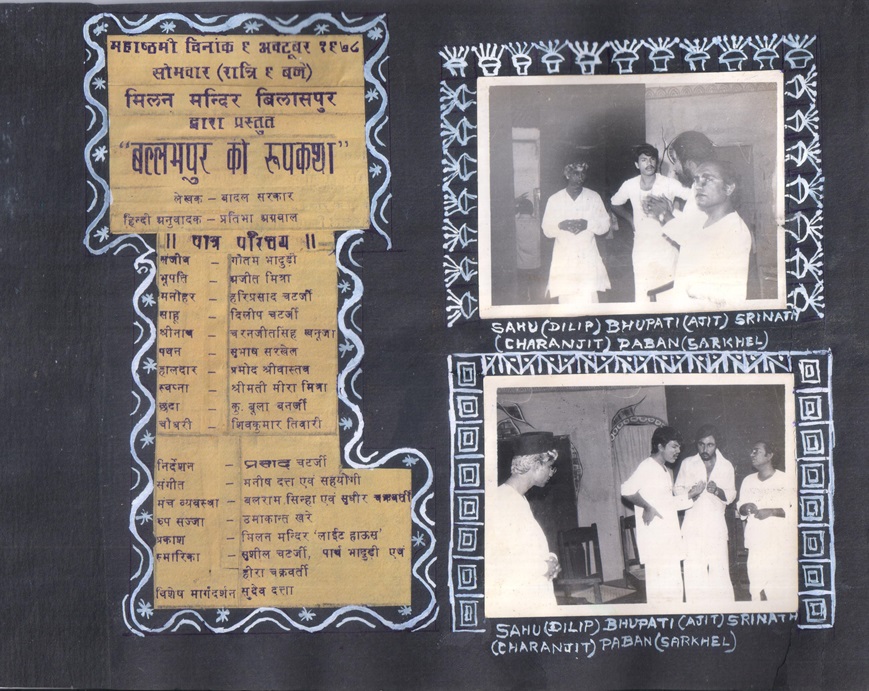 महाष्ठमी दिनांक ९ अक्टूबर १९७८
सोमवार (रात्रि ९ बजे)
मिलन मन्दिर बिलासपुर
द्वारा प्रस्तुत
"बल्लभपुर की रूपकथा"
लेखक – बादल सरकार
हिन्दी अनुवादक – प्रतिभा अग्रवाल
॥ पात्र परिचय ॥
संजीव – गौतम भादुड़ी
भूपति – अजीत मित्रा
मनोहर – हरिप्रसाद चटर्जी
साहू – दिलीप चटर्जी
श्रीनाथ – चरनजीतसिंह खनूजा
पवन – सुभाष सरखेल
हालदार – प्रमोद श्रीवास्तव
स्वप्ना – श्रीमती मीरा मित्रा
छन्दा – कु. बुला बनर्जी
चौधरी – शिवकुमार तिवारी
निर्देशन – प्रसाद चटर्जी
संगीत – मनीष दत्त एवं सहयोगी
मंच व्यवस्था – बलराम सिन्हा एवं सुधीर चक्रवर्ती
रूप सज्जा – उमाकान्त खरे
प्रकाश – मिलन मन्दिर 'लाईट हाऊस'
स्मारिका – सुशील चटर्जी, पार्थ भादुड़ी एवं
हीरा चक्रवर्ती
विशेष मार्गदर्शन सुदेव दत्ता
SAHU (DILIP) BHUPATI (AJIT) SRINATH
(CHARANJIT) PABAN (SARKHEL)
SAHU (DILIP) BHUPATI (AJIT) SRINATH
(CHARANJIT) PABAN (SARKHEL)